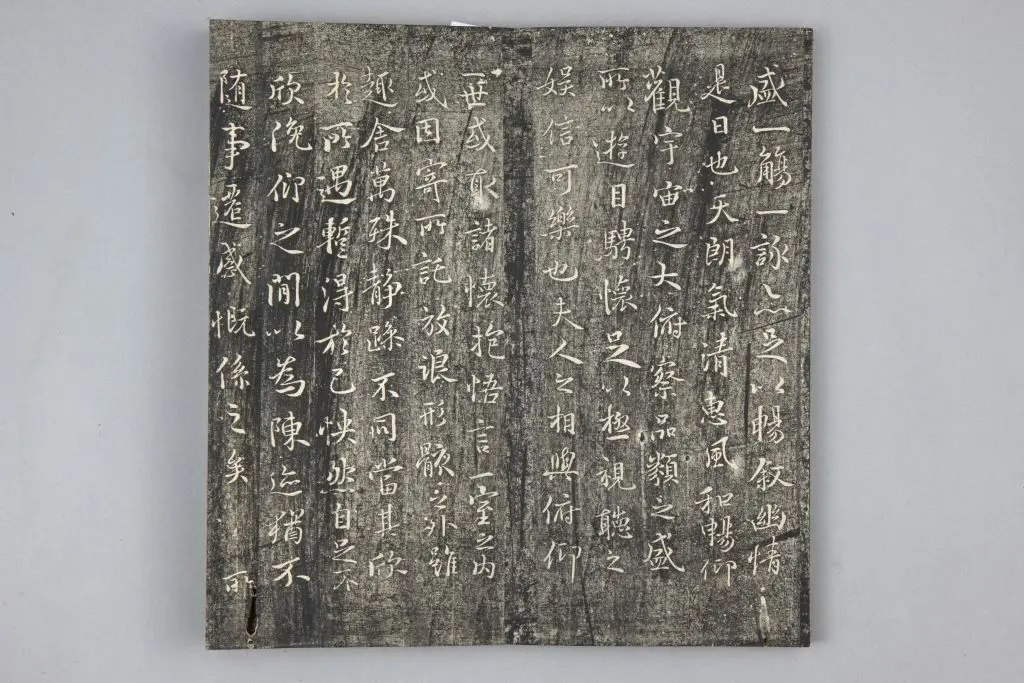 盛一觴一詠亦足以暢叙幽情
是日也天朗氣清惠風和暢仰
觀宇宙之大俯察品類之盛
所以遊目騁懷足以極視聽之
娛信可樂也夫人之相與俯仰
一世或取諸懷抱悟言一室之内
或因寄所託放浪形骸之外雖
趣舍萬殊静躁不同當其欣
於所遇蹔得於己怏然自足不
欣俛仰之閒以為陳迹猶不
随事遷感慨係之矣 所